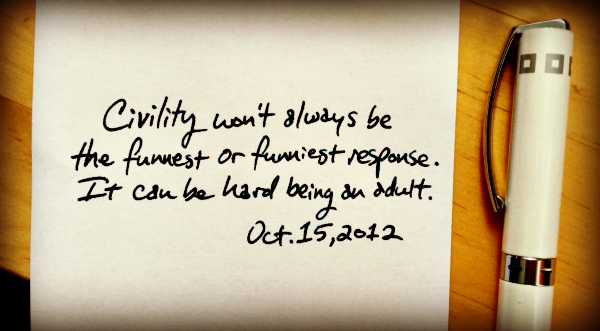 Civility won't always be
the funnest or funniest response.
It can be hard being an adult.
Oct. 15, 2012